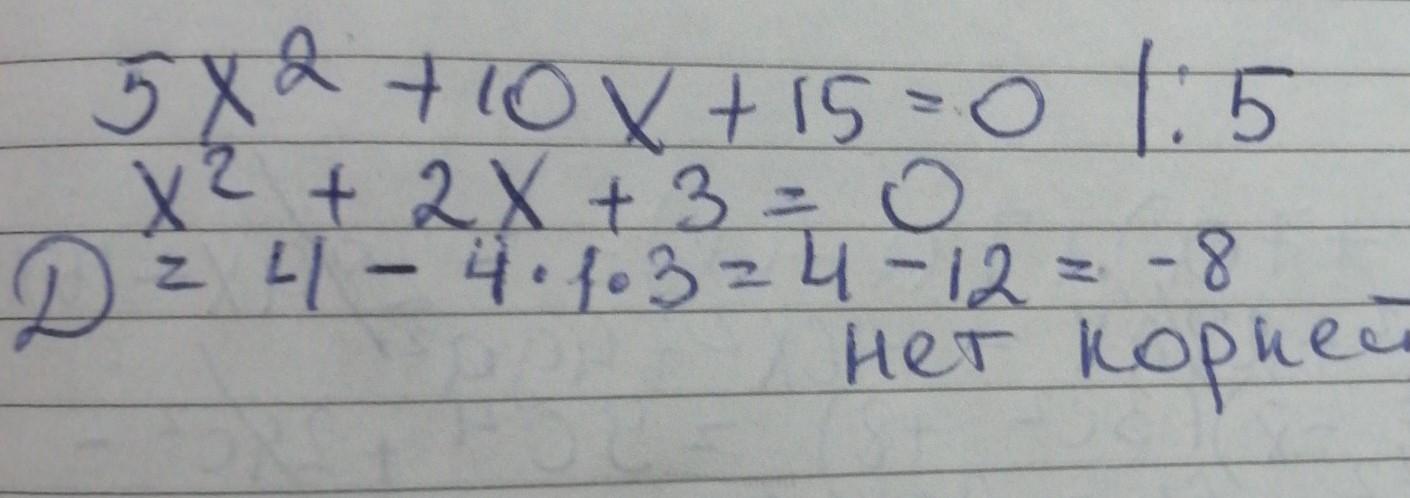 5x² + 10x + 15 = 0 |: 5
x² + 2x + 3 = 0
D = 4 - 4·1·3 = 4 - 12 = -8
нет корней